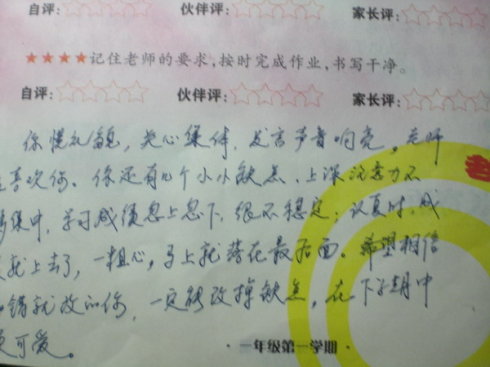 自评: 伙伴评: 家长评:
★★★★记住老师的要求,按时完成作业,书写干净。
自评: 伙伴评: 家长评:
你懂礼貌，关心集体，发言声音响亮。老师
喜欢你。你还有几个小小缺点、上课注意力不
集中，学习成绩忽上忽下，很不稳定；认真时，成
就上去了，一粗心，马上就落在最后面。希望相信
错就改的你，一定能改掉缺点，在下学期中
可爱。
·一年级第一学期·